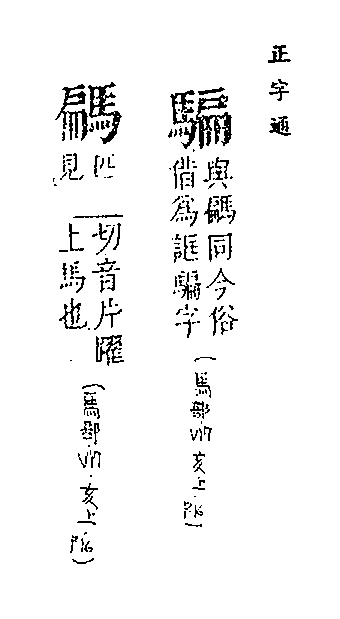 正字通
騙
與䮁同今俗
借爲誆騙字
(馬部·VIII·亥上·P16)
䮁
匹見切音片躍
上馬也
(馬部·VIII·亥上·P16)